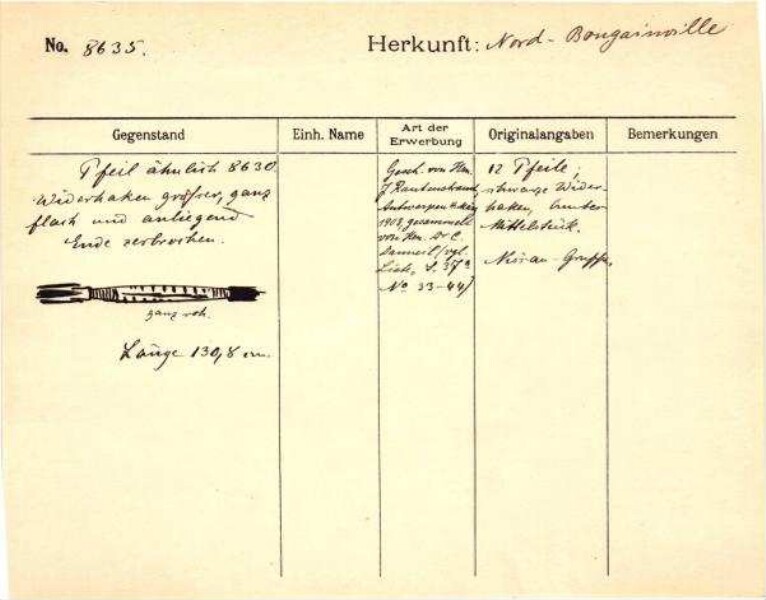 No. 8635.
Herkunft: Nord-Bougainville
Gegenstand
Einh. Name
Art der Erwerbung
Originalangaben
Bemerkungen
Pfeil ähnlich 8630
Widerhaken größer, ganz
flach und anliegend
Ende zerbrochen.
ganz roh.
Länge 130,8 cm.
Gesch. von Hrn.
Antwerpen
1903, gesammelt
von Hrn. Dr C.
vgl.
Liste, S. 37a
No 33-44)
12 Pfeile;
schwarze Wider-
haken, bunter
Mittelstück.
Nissan-Gruppe.